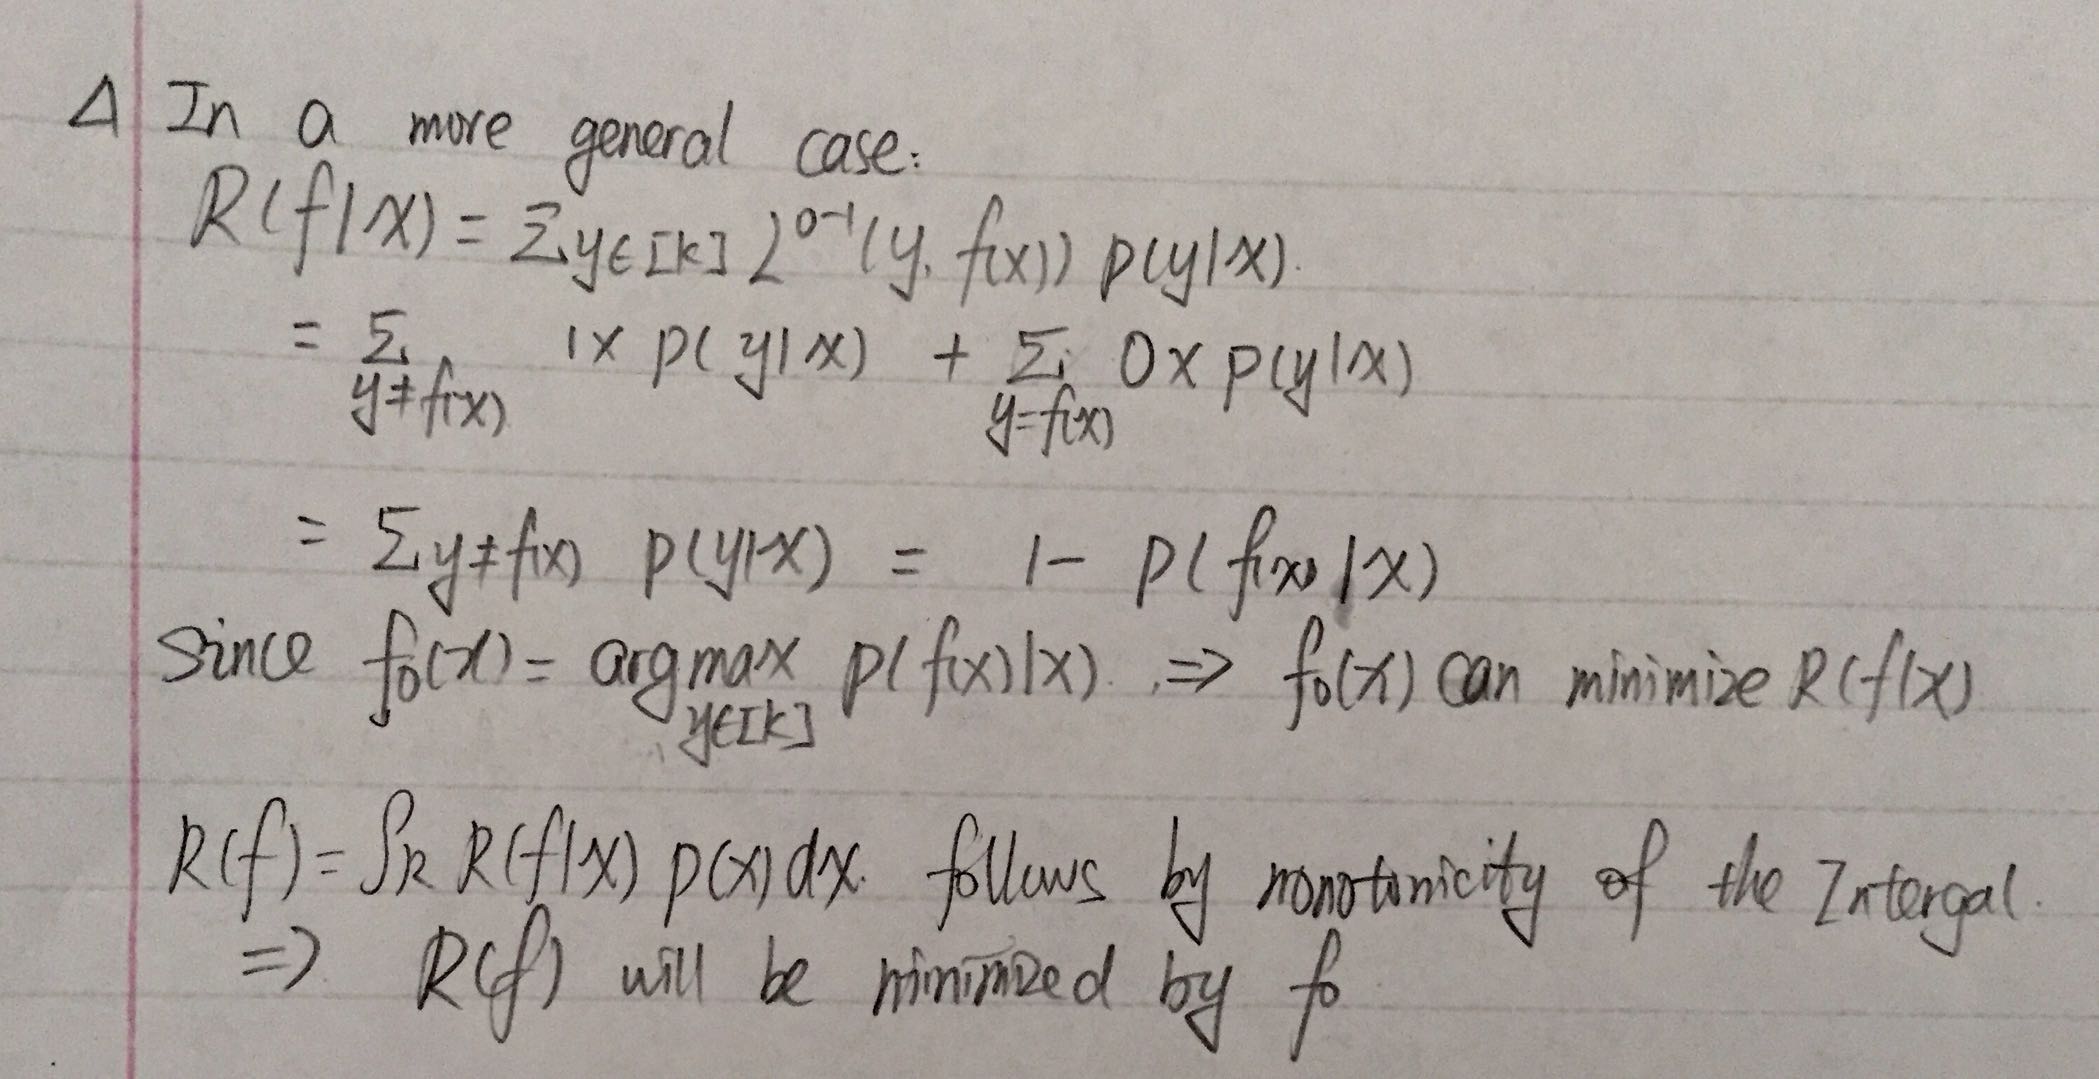 Δ In a more general case:
R(f|x) = Σy∈[k] L⁰⁻¹(y, f(x)) p(y|x).
= Σ y≠f(x) 1× p(y|x) + Σ y=f(x) 0× p(y|x)
= Σy≠f(x) p(y|x) = 1- p(f(x)|x)
Since f₀(x) = argmax y∈[k] p(f(x)|x). ⇒ f₀(x) can minimize R(f|x)
R(f) = ∫R R(f|x) p(x) dx. follows by monotonicity of the Intergal.
⇒ R(f) will be minimized by f₀